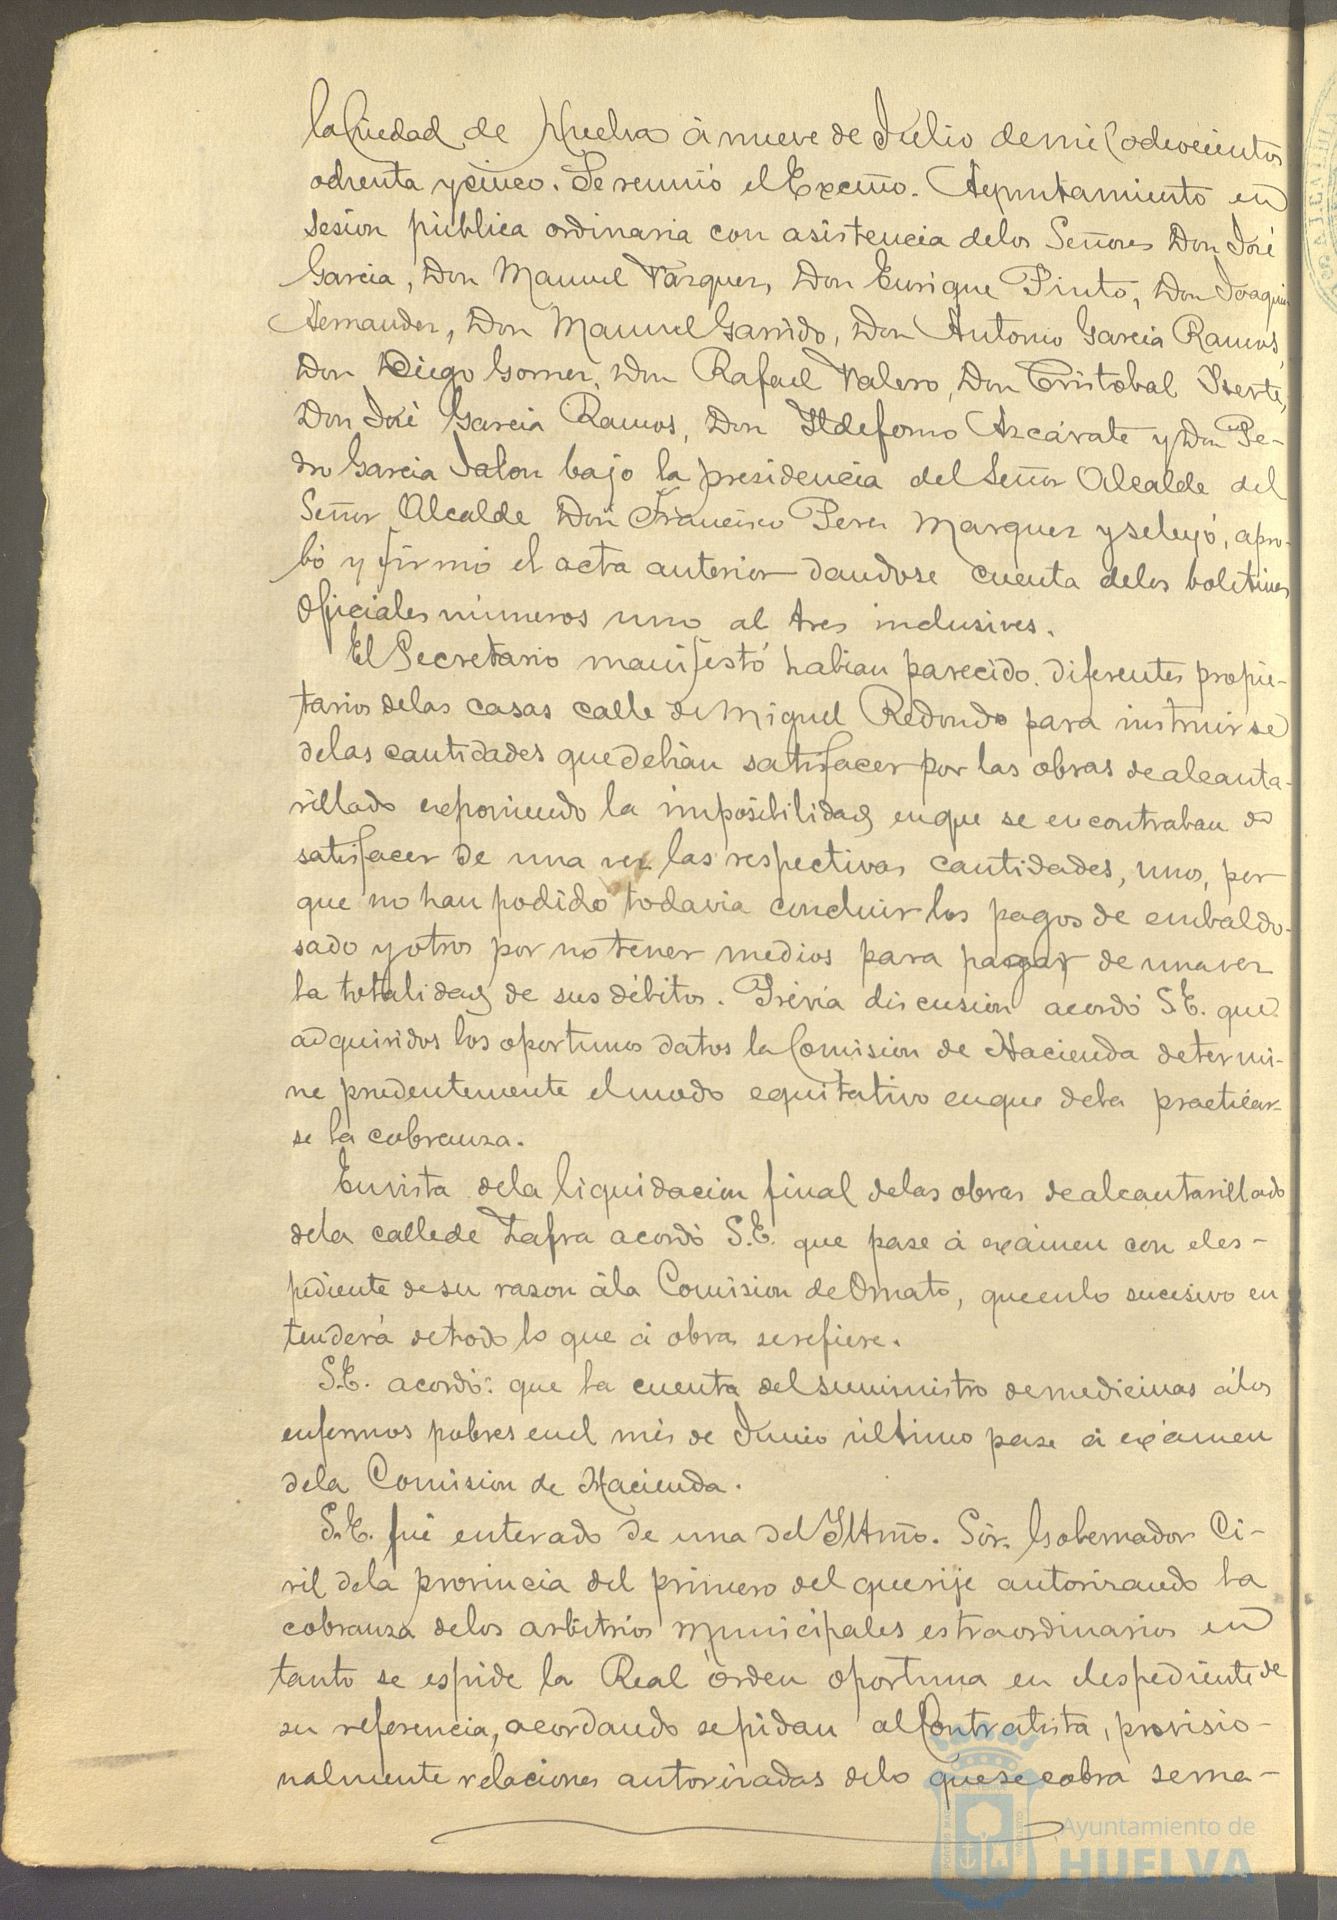 la Ciudad de Huelva á nueve de Julio de mil ochocientos
ochenta y cinco. Se reunió el Excmo. Ayuntamiento en
sesion pública ordinaria con asistencia delos Señores Don José
Garcia, Don Manuel Vazquez, Don Enrique Pinto, Don Joaquin
Hernandez, Don Manuel Garrido, Don Antonio Garcia Ramos,
Don Diego Gomez, Don Rafael Valero, Don Cristobal Iserte,
Don José Garcia Ramos, Don Ildefonso Azcárate y Don Pe-
dro Garcia Jalon bajo la presidencia del Señor Alcalde del
Señor Alcalde Don Francisco Perez Marquez y se leyó, apro-
bó y firmó el acta anterior dandose cuenta delos boletines
oficiales números uno al tres inclusives.
El Secretario manifestó habian parecido diferentes propie-
tarios delas casas calle de Miguel Redondo para instruirse
delas cantidades que debian satisfacer por las obras de alcanta-
rillado esponiendo la imposibilidad en que se encontraban de
satisfacer de una vez las respectivas cantidades, unos, por
que no han podido todavia concluir los pagos de embaldo-
sado y otros por no tener medios para pagar de una vez
la totalidad de sus débitos. Prévia discusion acordó S.E. que
adquiridos los oportunos datos la Comision de Hacienda determi-
ne prudentemente el modo equitativo en que deba practicar-
se la cobranza.
En vista dela liquidacion final delas obras de alcantarillado
dela calle de Zafra acordó S.E. que pase á exámen con el es-
pediente de su razon á la Comision de Ornato, que en lo sucesivo en
tenderá de todo lo que á obras se refiere.
S.E. acordó: que la cuenta del suministro de medicinas á los
enfermos pobres en el més de Junio último pase á exámen
dela Comision de Hacienda.
S.E. fué enterado de una del Iltmo. Sór. Gobernador Ci-
vil dela provincia del primero del que rije autorizando la
cobranza delos arbitrios municipales estraordinarios en
tanto se espide la Real órden oportuna en el espediente de
su referencia, acordando se pidan al Contratista, provisio-
nalmente relaciones autorizadas delo que se cobra sema-
Ayuntamiento de
HUELVA